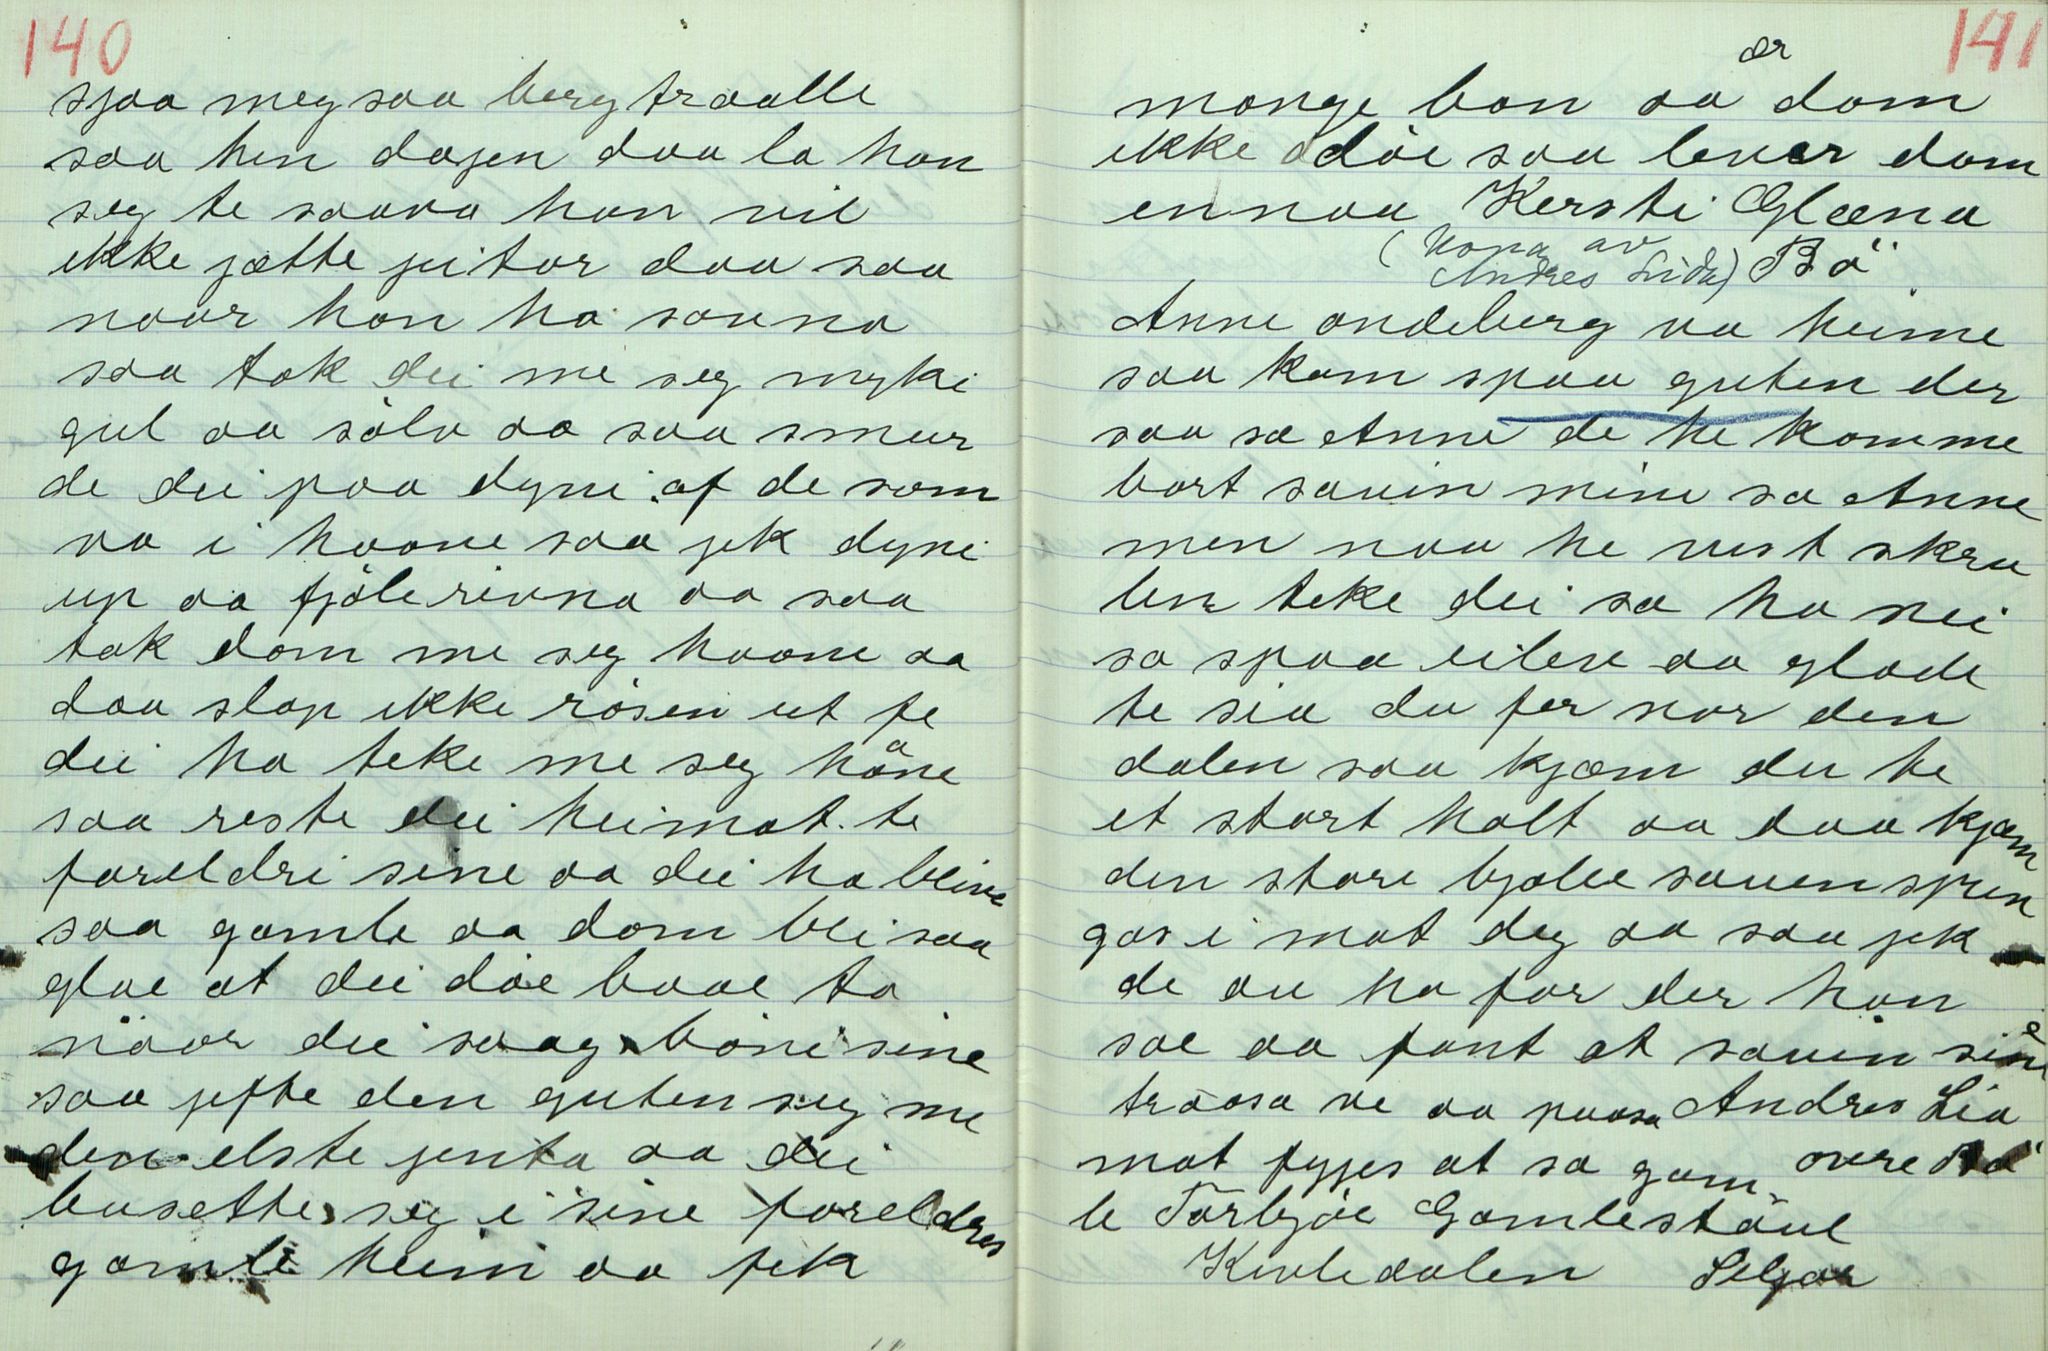 140
sjaa meg saa berg traalle
saa hin dagen daa la han
seg te saava han vil
ikke jætte jeitar daa saa
naar han ha sovna
saa tok dei me seg myki
gul aa sölv aa saa smur
de dei paa dyni af de som
va i hoone saa jek dyni
up aa fjöle rivna aa saa
tok dom me seg hoone aa
daa slap ikke rösen ut fe
dei ha teke me seg håne
saa reste dei heimat te
foreldri sine aa dei ha bleive
saa gamle aa dom blei saa
glae at dei döe baae to
naar dei saag böni sine
saa jifte den guten seg me
den elste jenta aa dei
busette seg i sine foreldres
gamle heim aa fek
141
mange bon aa ær dom
ikke döe saa lever dom
ennaa Kersti Glæna
(Kona av
Andres Lida) Bö
Anne andeberg va heime
saa kom spaa guten der
saa sa Anne de he komme
bort sauin mine sa Anne
men naa he vist skru
ben teke dei sa ha nei
sa spaa eilen aa glade
te sia du fer nor den
dalen saa kjæm du te
et stort holt aa daa kjæm
den store bjølle sauen spren
gas i mot deg aa saa jek
de au ha for der han
sae aa fant at sauin sine
traasa ve aa paasa Andres Lia
mat fyjes at sa gam- øvre Bö
le Torbjöe Gamlestöul
Kivledalen Seljor